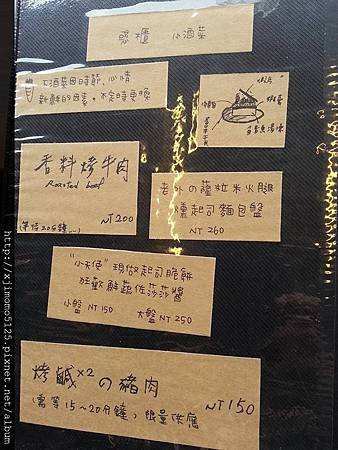 掌櫃 小酒菜
下酒菜因時節、心情
新鮮的因素,不定時更換
香料烤牛肉
Roasted beef
NT 200
(等待20分鐘...)
老外の薩拉米火腿
燻起司麵包盤
NT 260
"小天使"現做起司脆餅
狂歡鮮蔬佐莎莎醬
小盤 NT 150 大盤 NT 250
烤鹹×2の豬肉
NT 150
(需等15~20分鐘,限量供應
http://xjimomo5125.pixnet.net/album